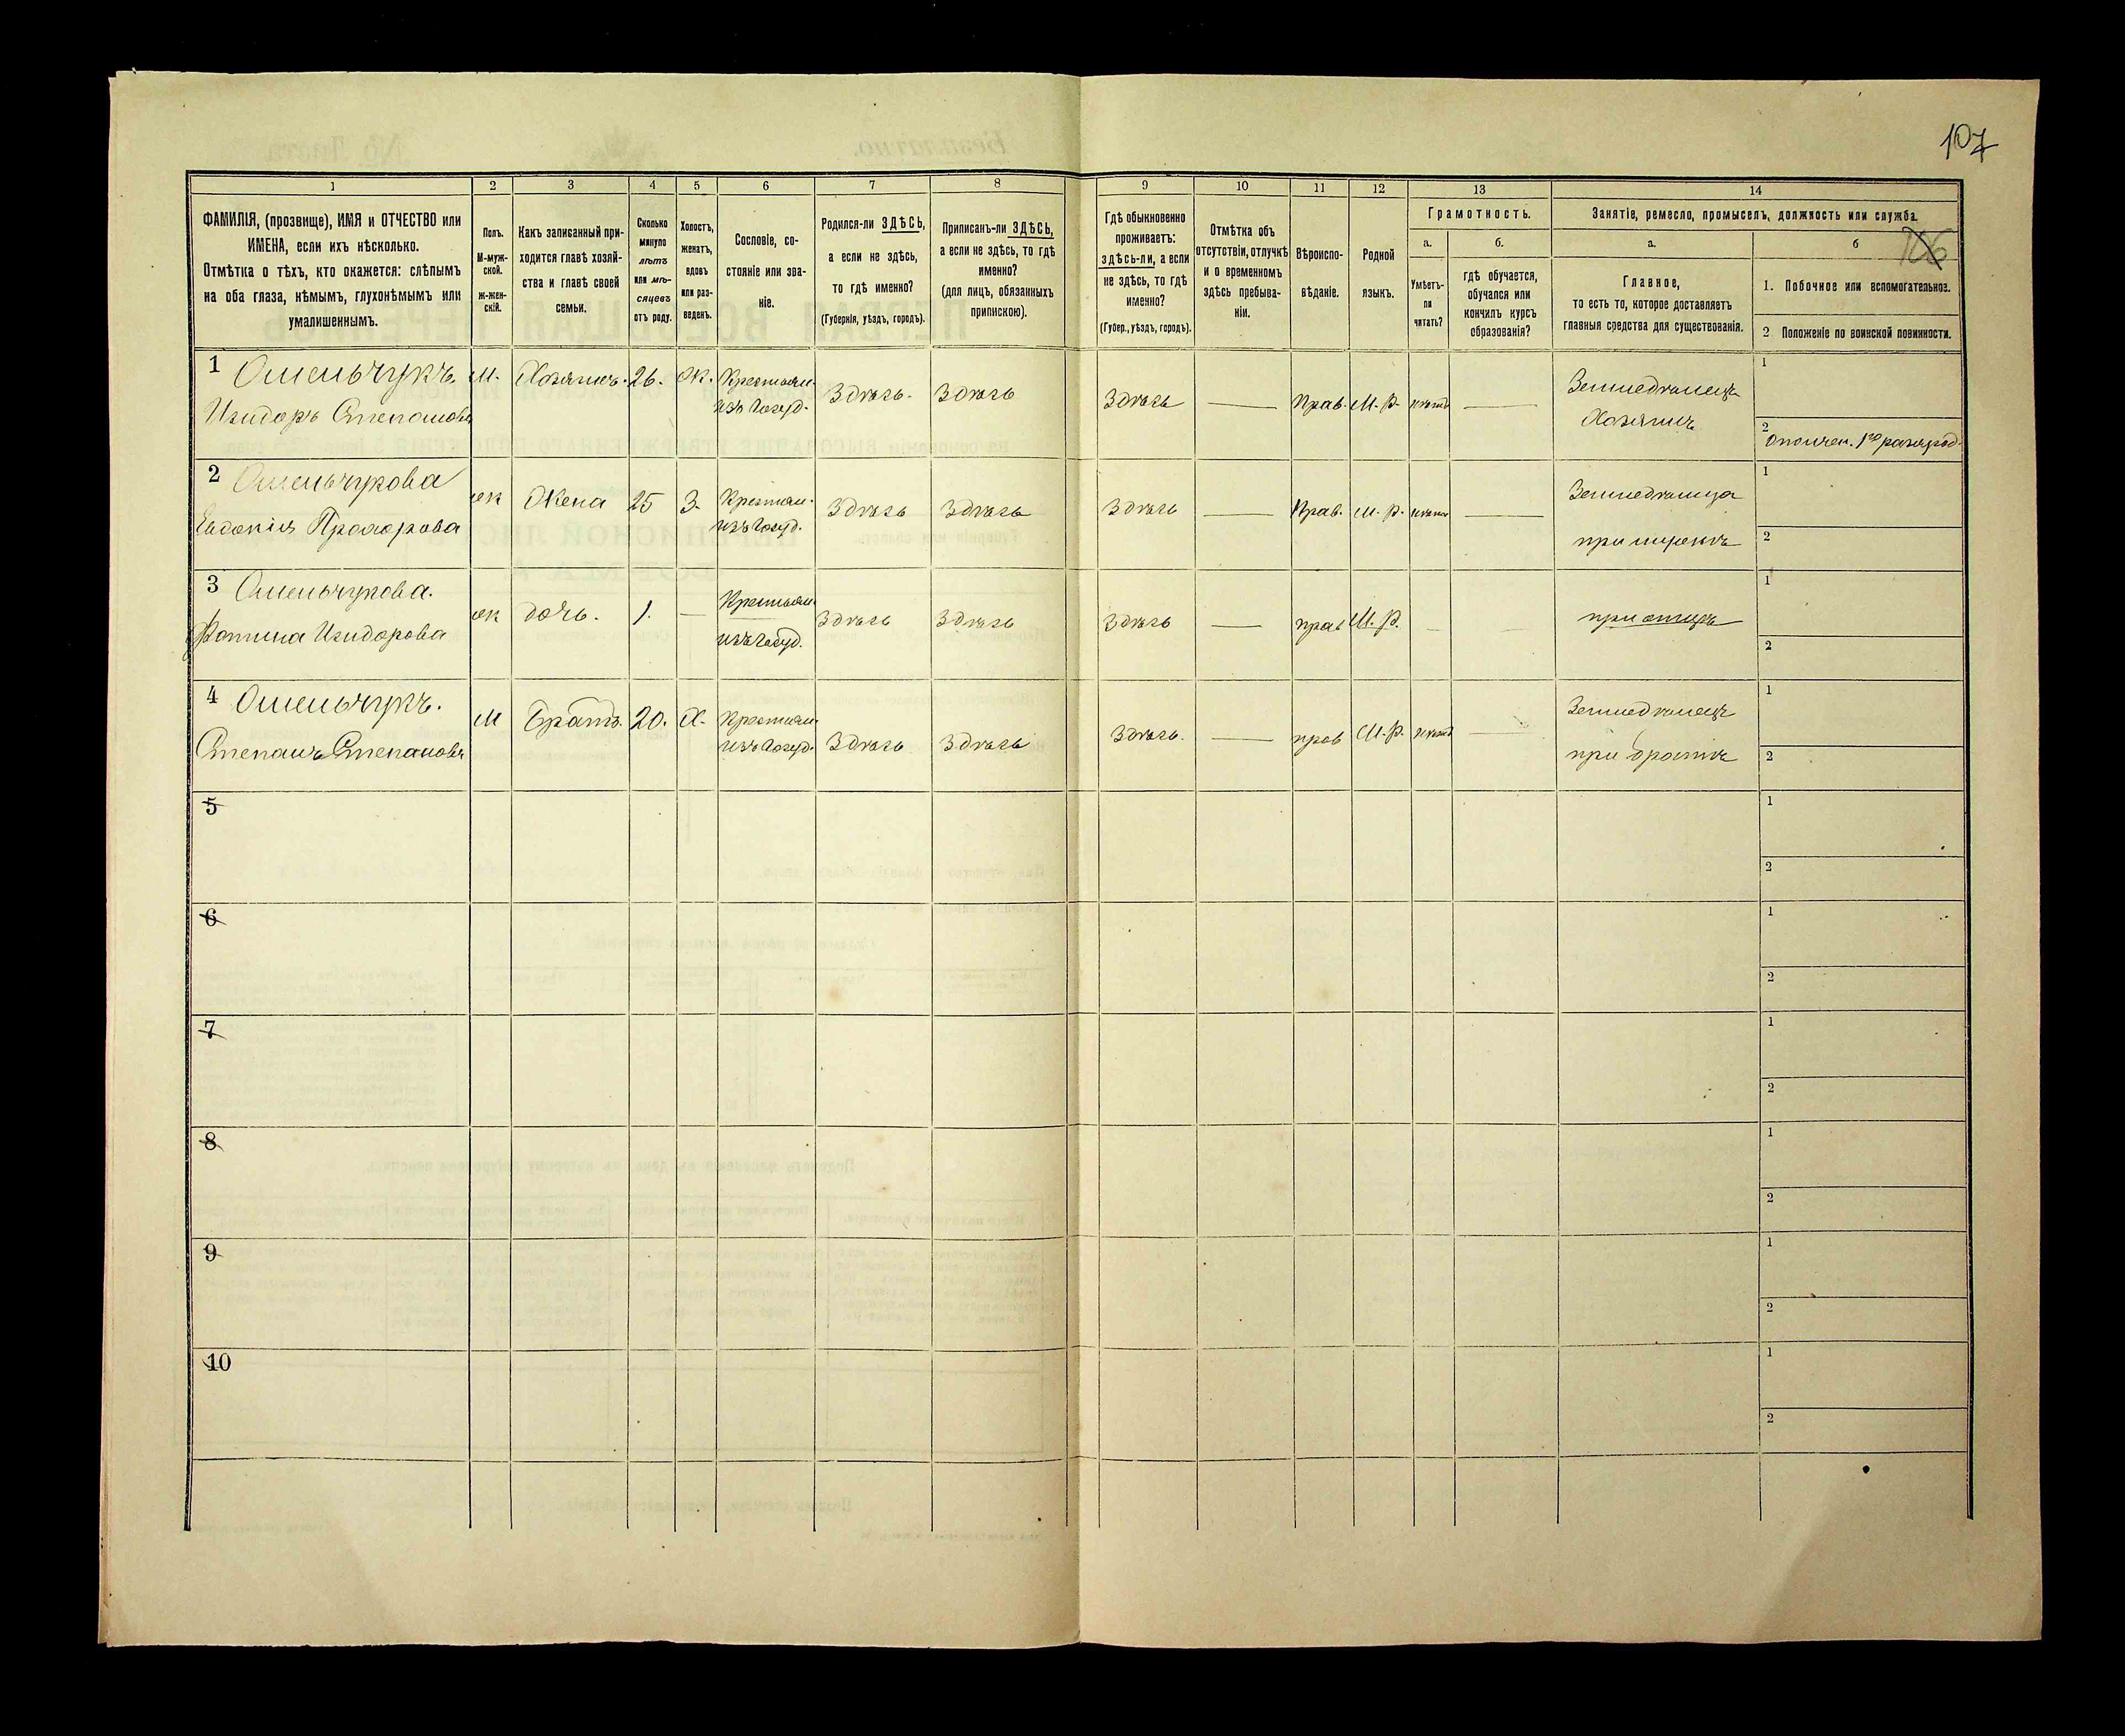 107
1 2 3 4 5 6 7 8 9 10 11 12 13 14
ФАМИЛІЯ, (прозвище), ИМЯ и ОТЧЕСТВО или
ИМЕНА, если ихъ нѣсколько.
Отмѣтка о тѣхъ, кто окажется: слѣпымъ
на оба глаза, нѣмымъ, глухонѣмымъ или
умалишеннымъ.
Полъ.
М-муж-
ской.
ж-жен-
скій.
Какъ записанный при-
ходится главѣ хозяй-
ства и главѣ своей
семьи.
Сколько
минуло
лѣтъ
или мѣ-
сяцевъ
отъ роду.
Холостъ,
женатъ,
вдовъ
или раз-
веденъ.
Сословіе, со-
стояніе или зва-
ніе.
Родился-ли ЗДѢСЬ,
а если не здѣсь,
то гдѣ именно?
(Губернія, уѣздъ, городъ).
Приписанъ-ли ЗДѢСЬ,
а если не здѣсь, то гдѣ
именно?
(для лицъ, обязанныхъ
припискою).
Гдѣ обыкновенно
проживаетъ:
здѣсь-ли, а если
не здѣсь, то гдѣ
именно?
(Губер., уѣздъ, городъ).
Отмѣтка объ
отсутствіи, отлучкѣ
и о временномъ
здѣсь пребыва-
ніи.
Вѣроиспо-
вѣданіе.
Родной
языкъ.
Грамотность.
а.
б.
Умѣетъ-
ли
читать?
гдѣ обучается,
обучался или
кончилъ курсъ
образованія?
Занятіе, ремесло, промыселъ, должность или служба.
а.
б
106
Главное,
то есть то, которое доставляетъ
главныя средства для существованія.
1. Побочное или вспомогательное.
2 Положеніе по воинской повинности.
1 Омельчукъ. М. Хозяинъ. 26. Ж. Крестьян. Здѣсь. Здѣсь Здѣсь — Прав. М. Р. нѣтъ — Земледѣлецъ 1
Изидоръ Степановъ изъ госуд. Хозяинъ 2 Ополчен. 1го разряд.
2 Омельчукова ж Жена 25 З. Крестьян. Здѣсь Здѣсь Здѣсь — Прав. М. Р. нѣтъ — Земледѣлица 1
Евдокія Прохорова изъ госуд. при мужѣ 2
3 Омельчукова. ж дочь. 1. — Крестьян. Здѣсь Здѣсь Здѣсь — прав М. Р. — — при отцѣ 1
Фотина Изидорова изъ госуд. 2
4 Омельчукъ. М Братъ. 20. Х. Крестьян. Здѣсь Здѣсь Здѣсь. — прав М. Р. нѣтъ — Земледѣлецъ 1
Степанъ Степановъ изъ госуд. при братѣ 2
5 1
2
6 1
2
7 1
2
8 1
2
9 1
2
10 1
2